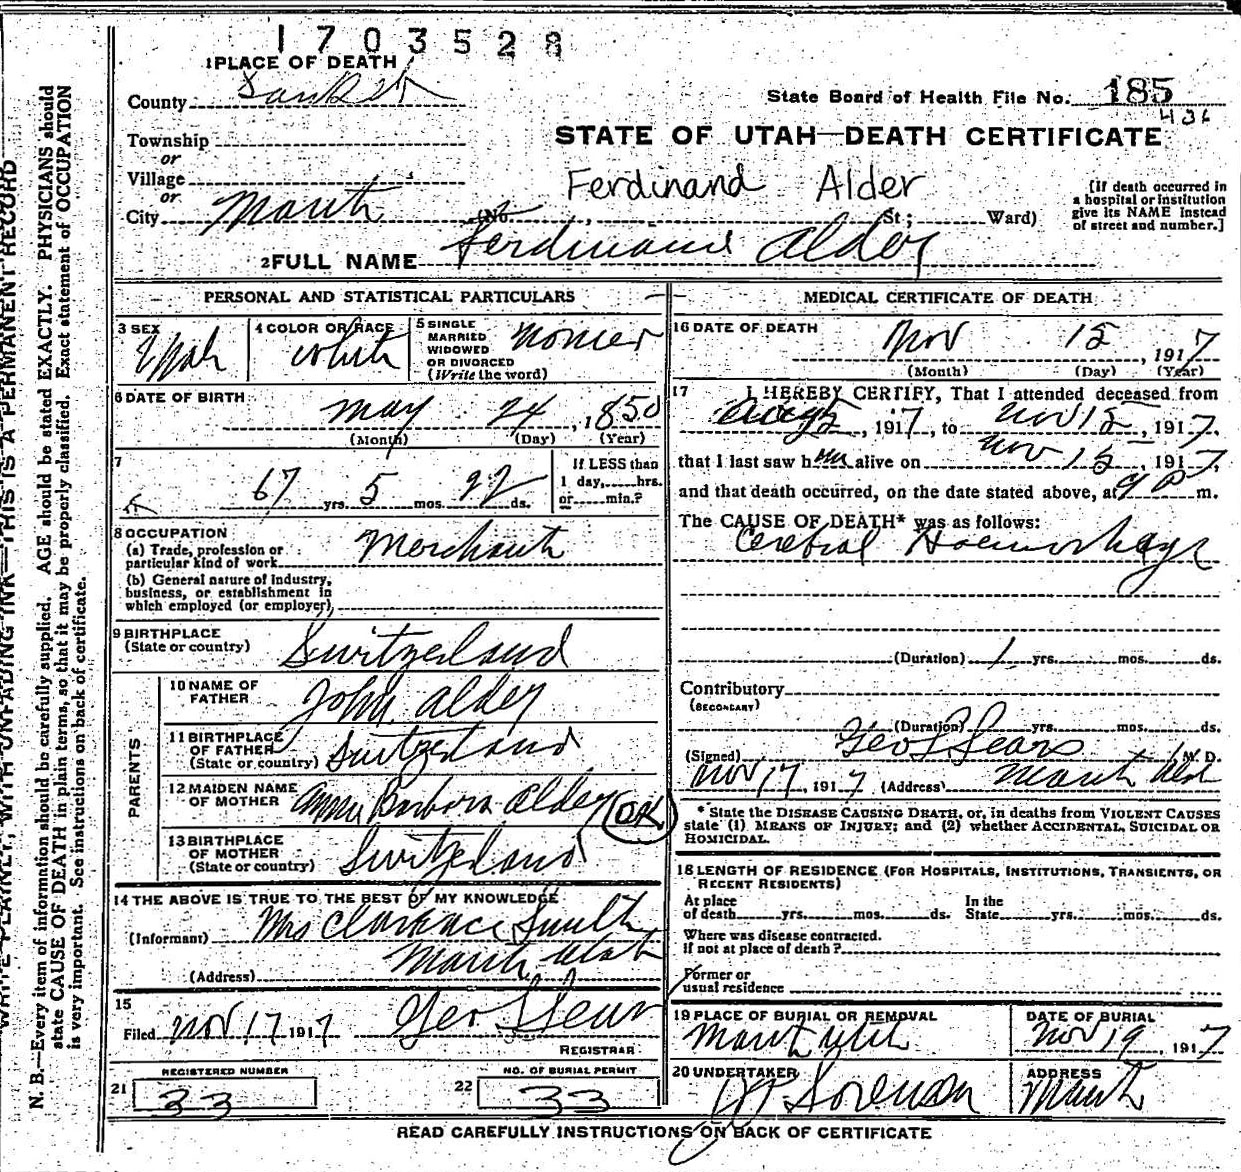 1703528
1 PLACE OF DEATH
County Sanpete
State Board of Health File No. 185
436
STATE OF UTAH—DEATH CERTIFICATE
Township
or
Village
or
City Manti (No. , St.; Ward)
Ferdinand Alder
[If death occurred in
a hospital or institution
give its NAME instead
of street and number.]
2 FULL NAME Ferdinand Alder
PERSONAL AND STATISTICAL PARTICULARS
3 SEX Male
4 COLOR OR RACE White
5 SINGLE
MARRIED
WIDOWED
OR DIVORCED
(Write the word)
6 DATE OF BIRTH May 24, 1850
(Month) (Day) (Year)
7
67 yrs. 5 mos. 22 ds.
If LESS than
1 day, hrs.
or min.?
8 OCCUPATION
(a) Trade, profession or
particular kind of work Merchant
(b) General nature of industry,
business, or establishment in
which employed (or employer)
9 BIRTHPLACE
(State or country) Switzerland
PARENTS
10 NAME OF
FATHER John Alder
11 BIRTHPLACE
OF FATHER
(State or country) Switzerland
12 MAIDEN NAME
OF MOTHER Anna Barbora Alder OK
13 BIRTHPLACE
OF MOTHER
(State or country) Switzerland
14 THE ABOVE IS TRUE TO THE BEST OF MY KNOWLEDGE
(Informant) Mrs Clarence Smith
(Address) Manti Utah
15
Filed Nov 17 1917 Geo L Sears
REGISTRAR
REGISTERED NUMBER
21 33
NO. OF BURIAL PERMIT
22 33
MEDICAL CERTIFICATE OF DEATH
16 DATE OF DEATH
Nov 15, 1917
(Month) (Day) (Year)
17 I HEREBY CERTIFY, That I attended deceased from
, 1917, to Nov 15, 1917,
that I last saw him alive on Nov 15, 1917,
and that death occurred, on the date stated above, at 9 P m.
The CAUSE OF DEATH* was as follows:
Cerebral Haemorhage
(Duration) 1 yrs. mos. ds.
Contributory
(SECONDARY)
(Duration) yrs. mos. ds.
(Signed) Geo L Sears M. D.
Nov 17, 1917 (Address) Manti Utah
* State the DISEASE CAUSING DEATH, or, in deaths from VIOLENT CAUSES
state (1) MEANS OF INJURY; and (2) whether ACCIDENTAL, SUICIDAL OR
HOMICIDAL.
18 LENGTH OF RESIDENCE (FOR HOSPITALS, INSTITUTIONS, TRANSIENTS, OR
RECENT RESIDENTS)
At place
of death yrs. mos. ds.
In the
State yrs. mos. ds.
Where was disease contracted.
if not at place of death?
Former or
usual residence
19 PLACE OF BURIAL OR REMOVAL
Manti Utah
DATE OF BURIAL
Nov 19, 1917
20 UNDERTAKER
Sorenson
ADDRESS
Manti
READ CAREFULLY INSTRUCTIONS ON BACK OF CERTIFICATE
WRITE PLAINLY, WITH UNFADING INK—THIS IS A PERMANENT RECORD
N. B.—Every item of information should be carefully supplied. AGE should be stated EXACTLY. PHYSICIANS should
state CAUSE OF DEATH in plain terms, so that it may be properly classified. Exact statement of OCCUPATION
is very important. See instructions on back of certificate.